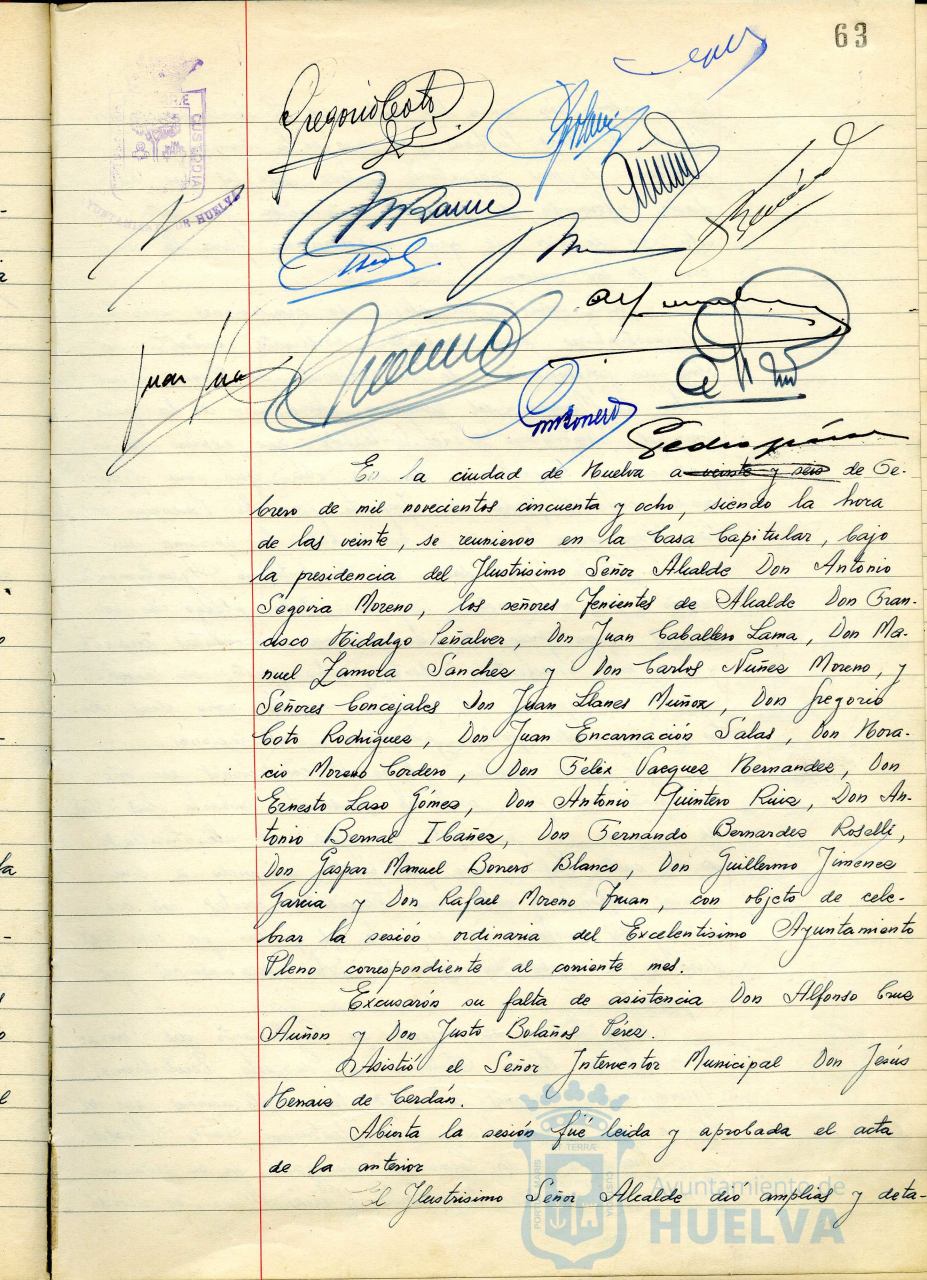 63
PORTUS MARIS
ET TERRÆ
CUSTODIA
AYUNTAMIENTO DE HUELVA
Gregorio Coto
Juan
En la ciudad de Huelva a veinte y seis de Fe-
brero de mil novecientos cincuenta y ocho, siendo la hora
de las veinte, se reunieron en la Casa Capitular, bajo
la presidencia del Ilustrisimo Señor Alcalde Don Antonio
Segovia Moreno, los señores Tenientes de Alcalde Don Fran-
cisco Hidalgo Peñalver, Don Juan Caballero Lama, Don Ma-
nuel Zamora Sanchez y Don Carlos Nuñez Moreno, y
Señores Concejales Don Juan Llanes Muñoz, Don Gregorio
Coto Rodriguez, Don Juan Encarnación Salas, Don Hora-
cio Moreno Cordero, Don Felix Vazquez Hernandez, Don
Ernesto Laso Gómez, Don Antonio Quintero Ruiz, Don An-
tonio Bernal Ibañez, Don Fernando Bernardez Roselli,
Don Gaspar Manuel Bonero Blanco, Don Guillermo Jimenez
Garcia y Don Rafael Moreno, con objeto de cele-
brar la sesión ordinaria del Excelentisimo Ayuntamiento
Pleno correspondiente al corriente mes.
Excusarón su falta de asistencia Don Alfonso Cruz
Auñon y Don Justo Bolaños Pérez.
Asistió el Señor Interventor Municipal Don Jesús
Henais de Cerdán.
Abierta la sesión fué leida y aprobada el acta
de la anterior
El Ilustrisimo Señor Alcalde dió amplias y deta-
Ayuntamiento de
HUELVA